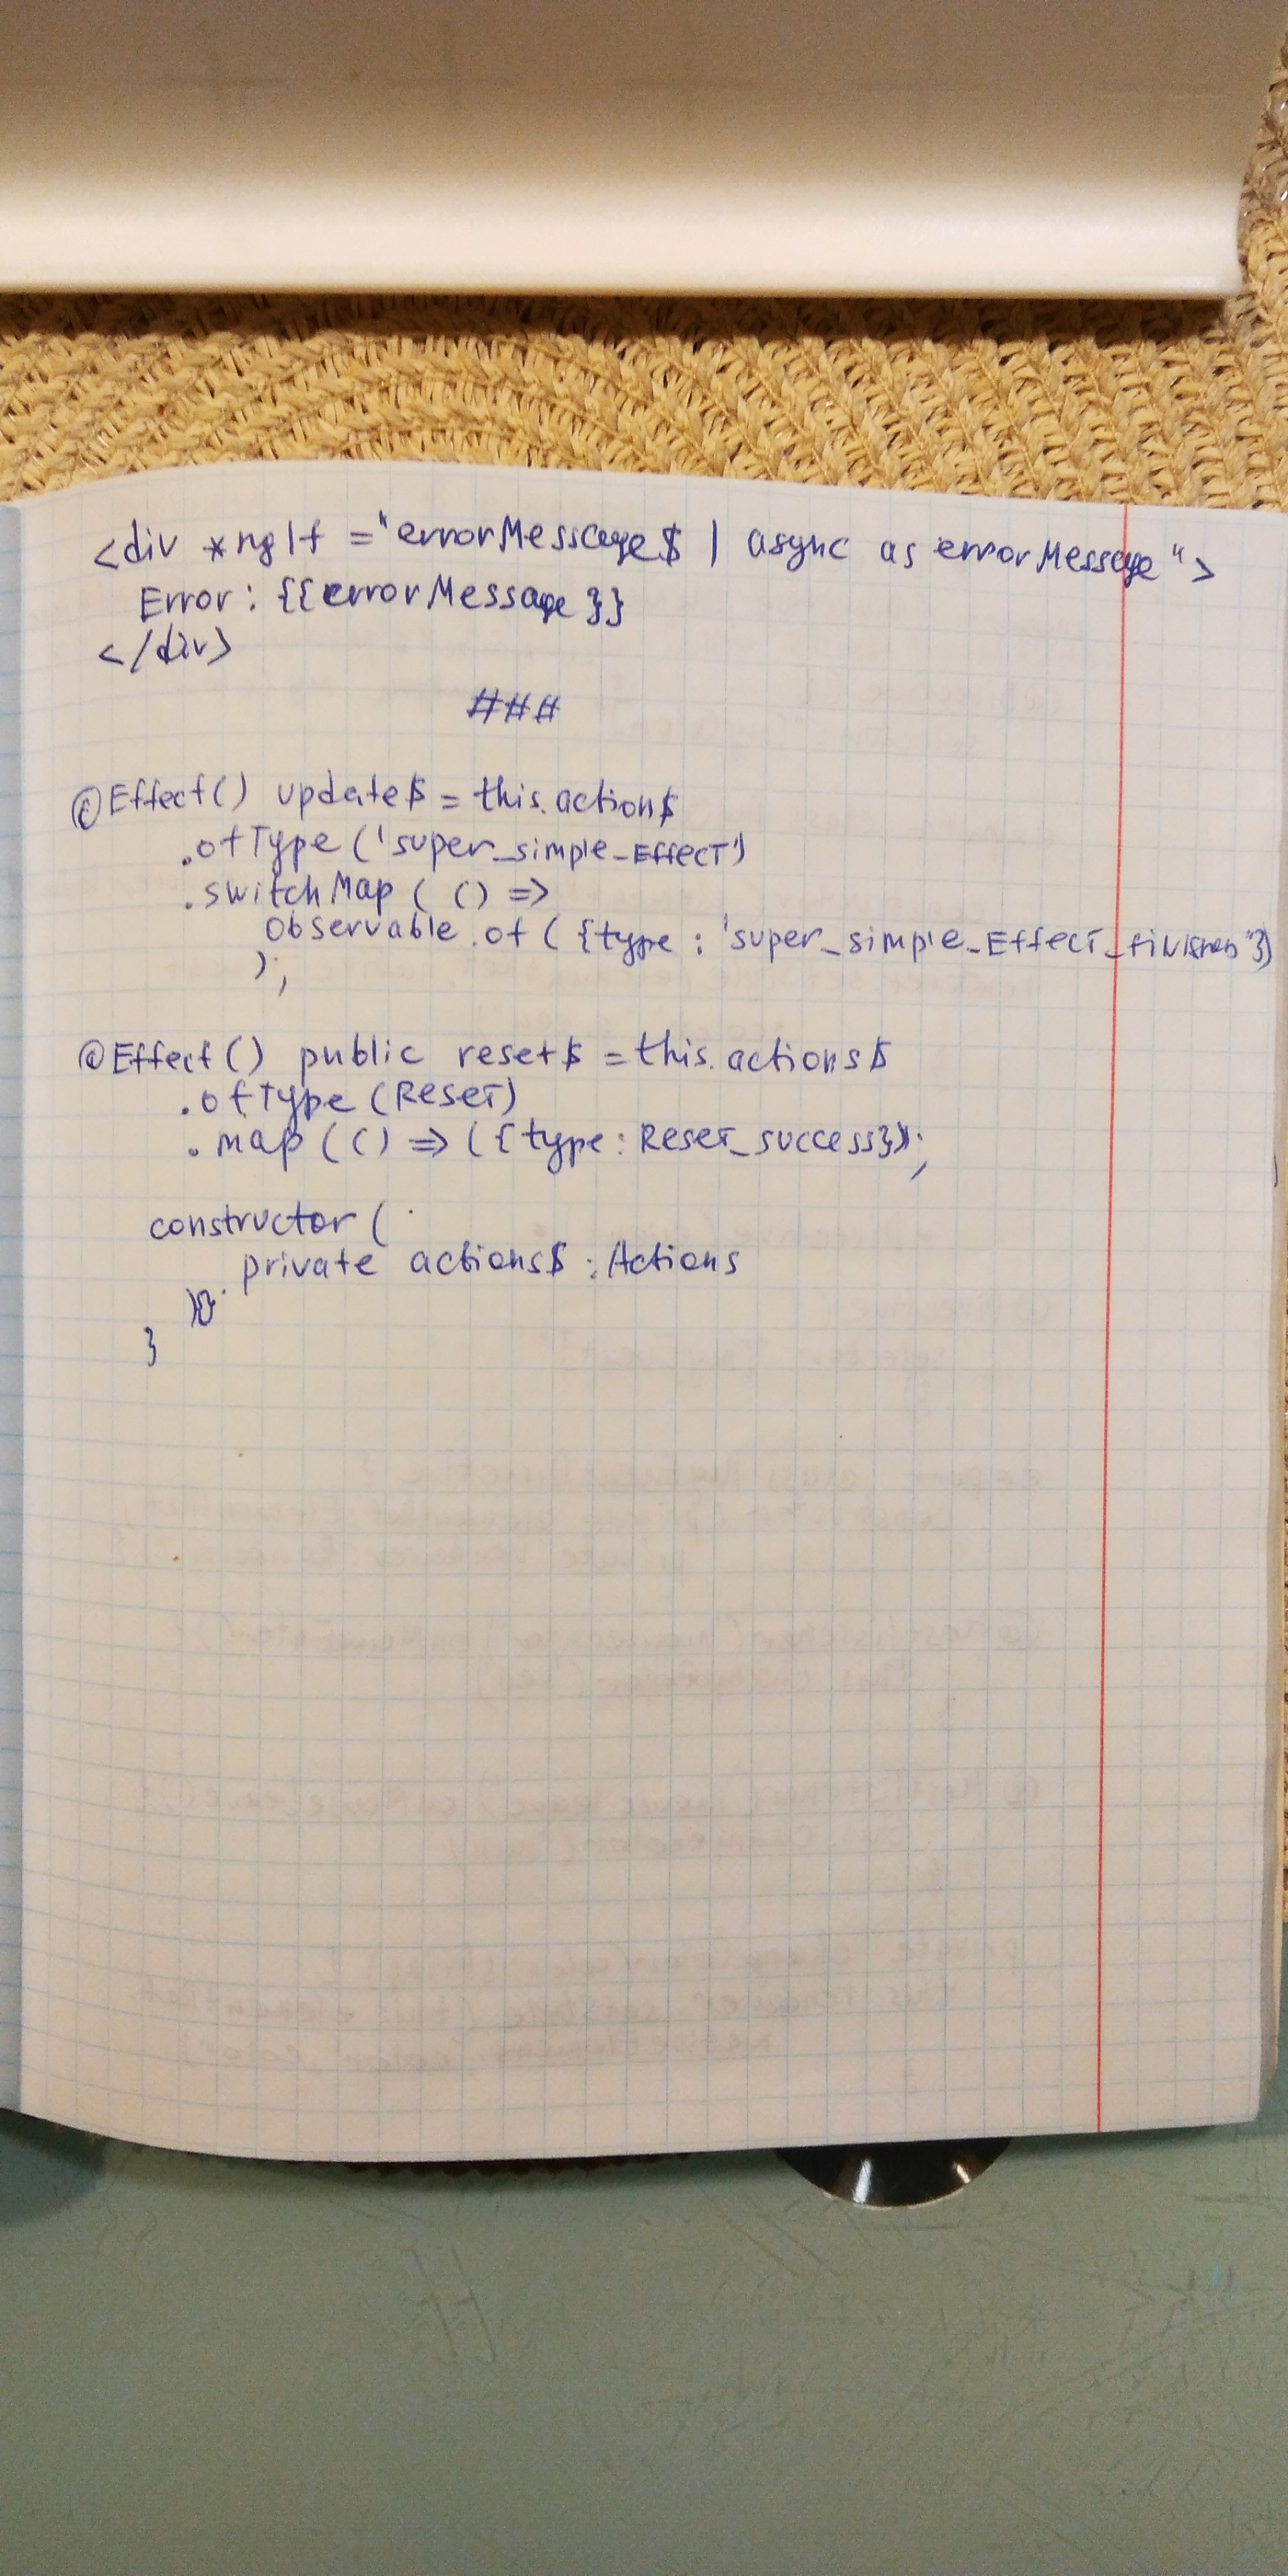 <div *ngIf ="errorMessage$ | async as errorMessage">
Error: {{errorMessage}}
</div>
###
@Effect() update$ = this.action$
.ofType('super_simple_EffecT')
.switchMap( () =>
Observable.of( {type : 'super_simple_EffecT_finished"})
);
@Effect() public reset$ = this.actions$
.ofType(ReseT)
.map(() => ({type: ReseT_success});
constructor(
private actions$ : Actions
){}
}